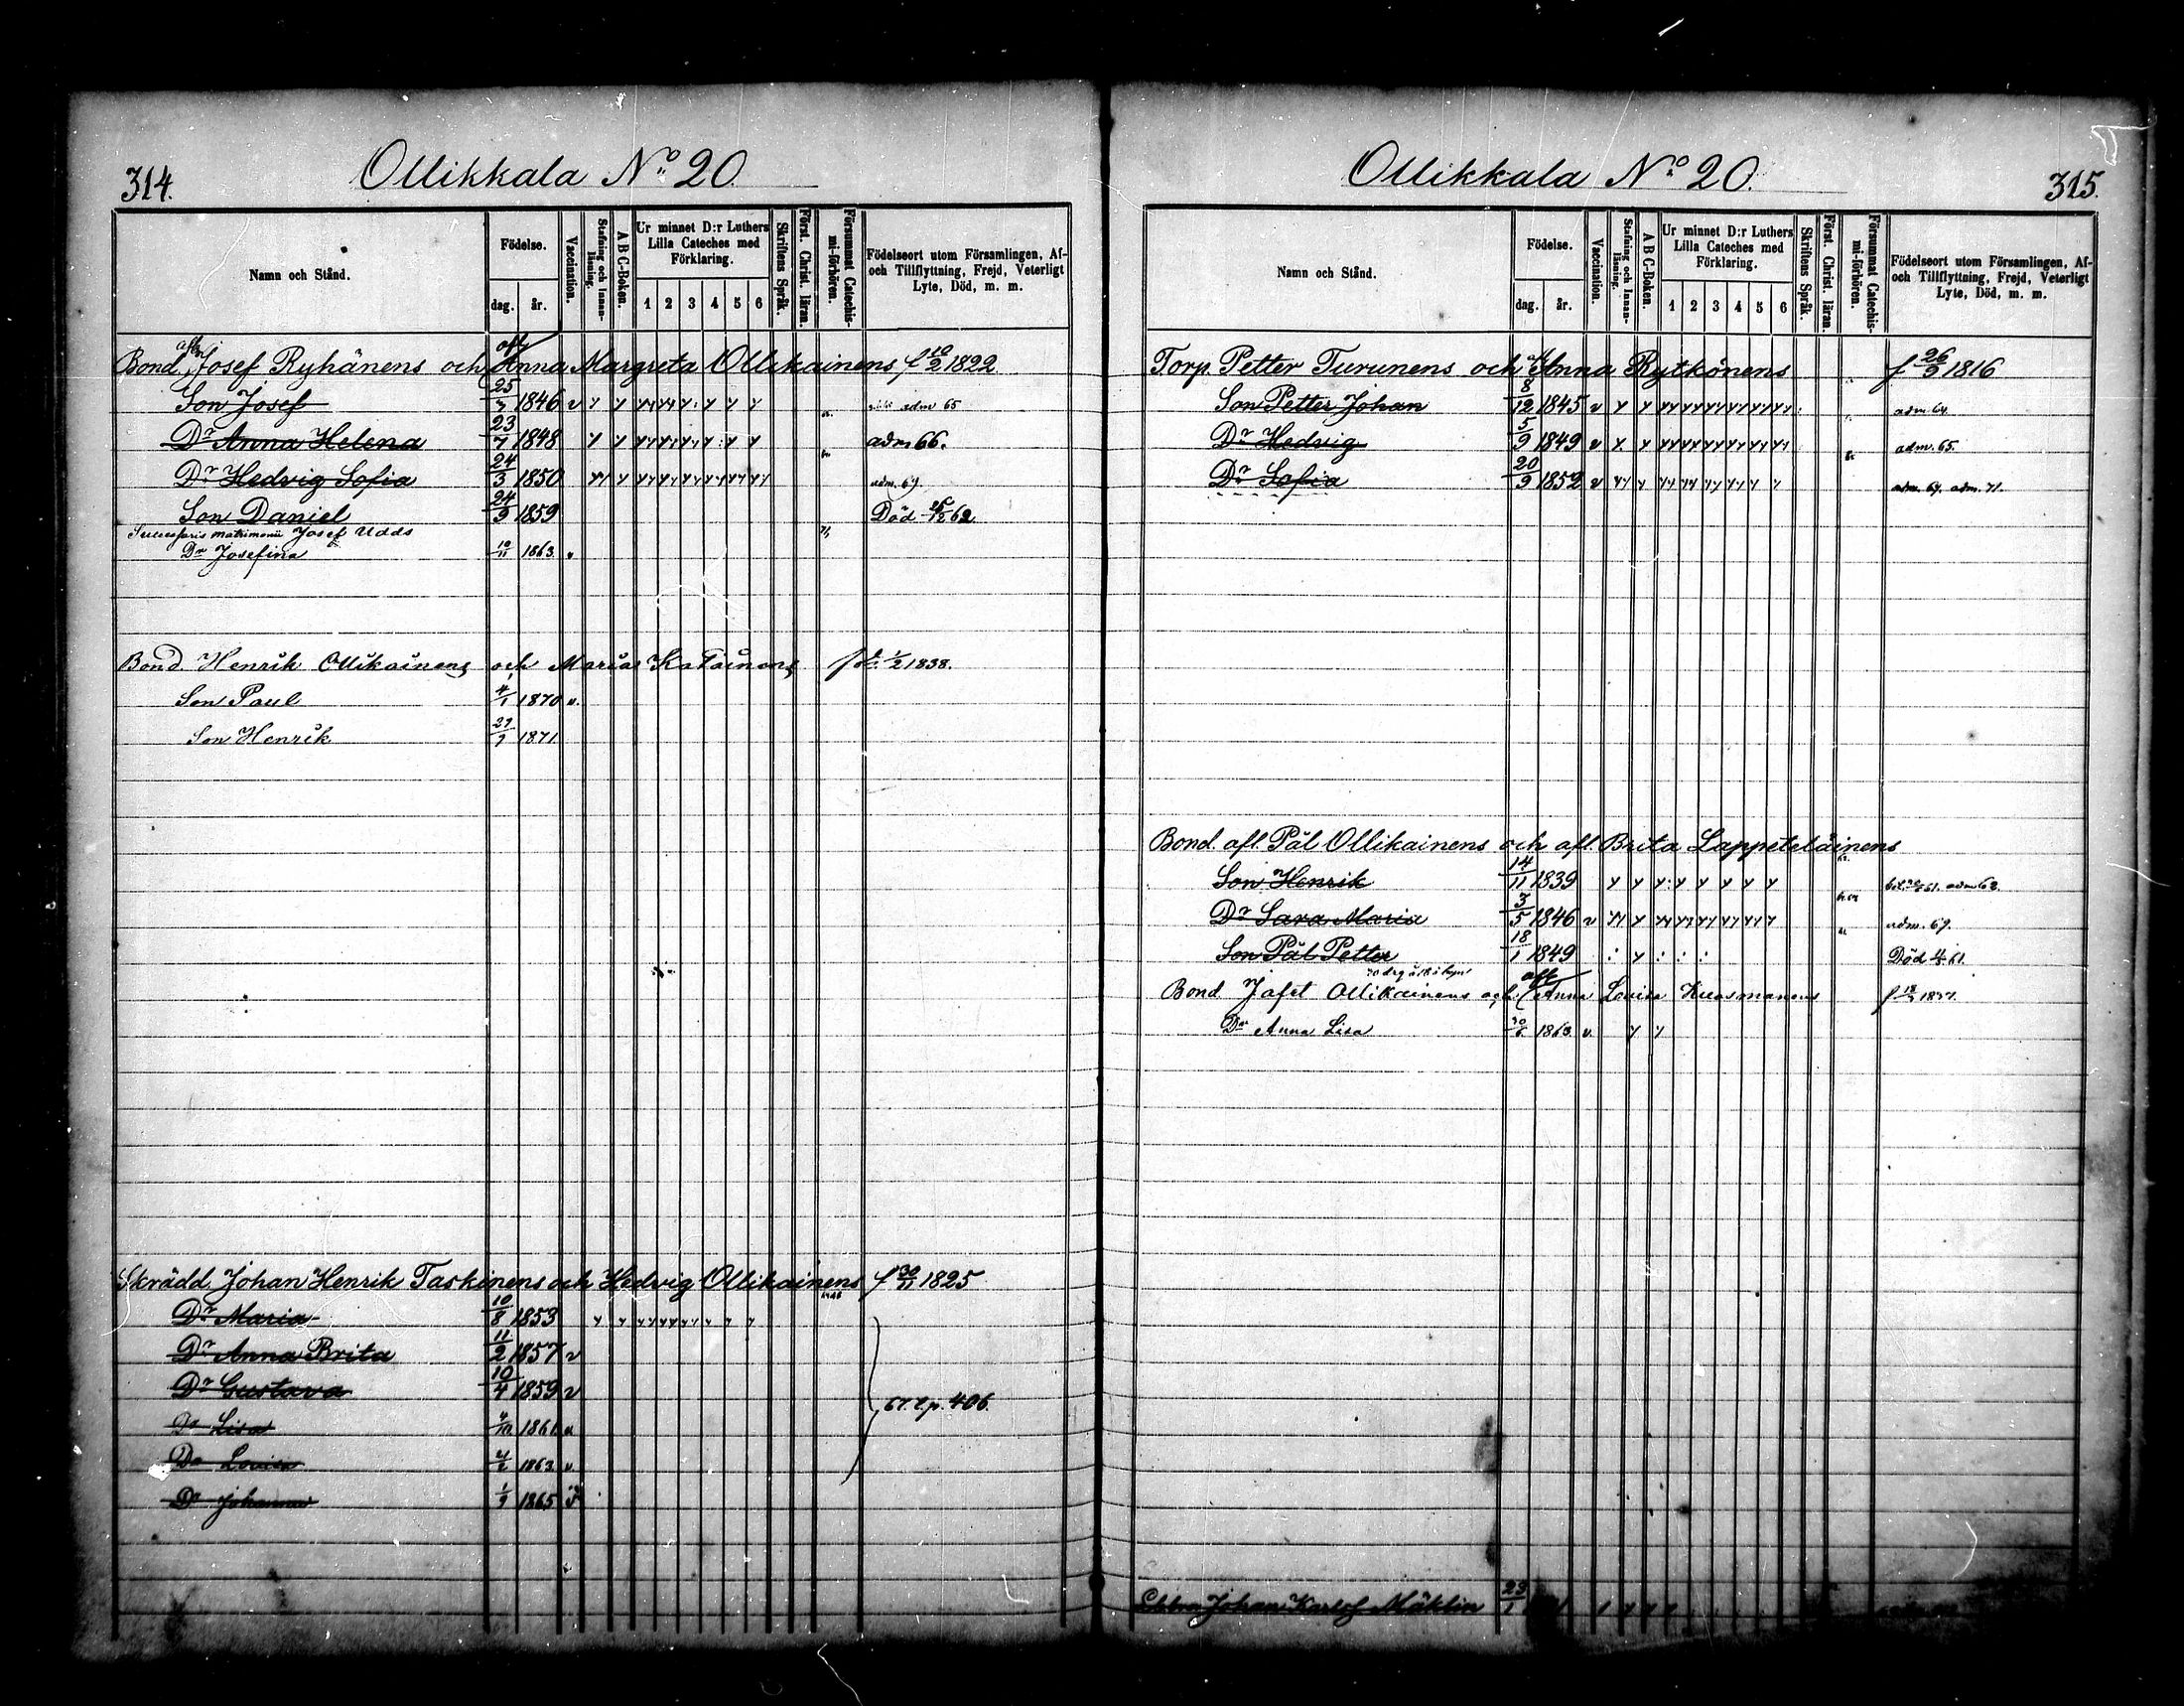 314.
Ollikkala No 20.
Namn och Stånd.
Födelse.
dag.
år.
Vaccination.
Stafning och Innanläsning.
A B C-Boken.
Ur minnet D:r Luthers Lilla Cateches med Förklaring.
1 2 3 4 5 6
Skriftens Språk.
Först. Christ. läran.
Försummat Catechismi-förhören.
Födelseort utom Församlingen, Af- och Tillflyttning, Frejd, Veterligt Lyte, Död, m. m.
Bond. Josef Ryhänens och afl. Anna Margreta Ollikainens f 10/2 1822
Son Josef 25/3 1846 v adm 65
Dr Anna Helena 23/7 1848 adm 66.
Dr Hedvig Sofia 24/3 1850 adm. 69.
Son Daniel 24/9 1859 Död 62
matrimonii Josef Udds
Dr Josefina 10/11 1863. v
Bond Henrik Ollikainens och Marias Katainens 1838.
Son Paul 4/1 1870 v.
Son Henrik 29/9 1871
Skrädd. Johan Henrik Taskinens och Hedvig Ollikainens f 30/11 1825
Dr Maria 10/8 1853
Dr Anna Brita 11/2 1857 v
Dr Gustava 10/4 1859 v
67. p. 406.
Dr Lisa 4/10 1861 v
Dr Lovisa 4/2 1863 v
Dr Johanna 1/9 1865
Ollikkala No 20.
315.
Namn och Stånd.
Födelse.
dag.
år.
Vaccination.
Stafning och Innanläsning.
A B C-Boken.
Ur minnet D:r Luthers Lilla Cateches med Förklaring.
1 2 3 4 5 6
Skriftens Språk.
Först. Christ. läran.
Försummat Catechismi-förhören.
Födelseort utom Församlingen, Af- och Tillflyttning, Frejd, Veterligt Lyte, Död, m. m.
Torp. Petter Turunens och Anna Rytkönens f 26/9 1816
Son Petter Johan 8/12 1845 v adm. 64.
Dr Hedvig 5/9 1849 v adm. 65.
Dr Sofia 20/9 1852 v adm. 69. adm. 71.
Bond. afl. Pål Ollikainens och afl. Brita Lappeteläinens
Son Henrik 14/11 1839 adm 62.
Dr Sara Maria 3/5 1846 v adm. 69.
Son Pål Petter 18/1 1849 Död 61.
Bond Jafet Ollikainens och afl Anna Lovisa Kuosmanens
Dr Anna Lisa 30/6 1863. v.
Johan Karlof Mäklin 23/1